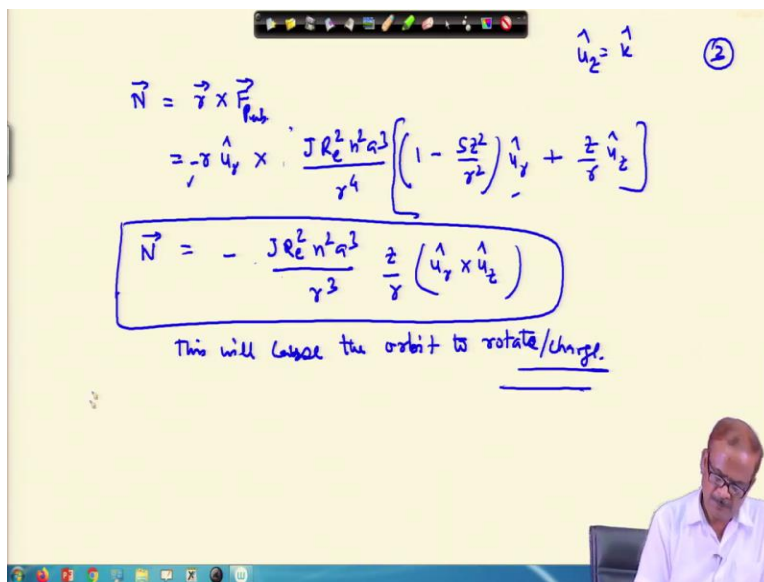 û_z = k̂ ②
N⃗ = r⃗ × F⃗_Pub.
= -r û_r × JR_e² n² a³ / r⁴ [ ( 1 - 5z² / r² ) û_r + z/r û_z ]
N⃗ = - JR_e² n² a³ / r³ z/r ( û_r × û_z )
This will cause the orbit to rotate/change.